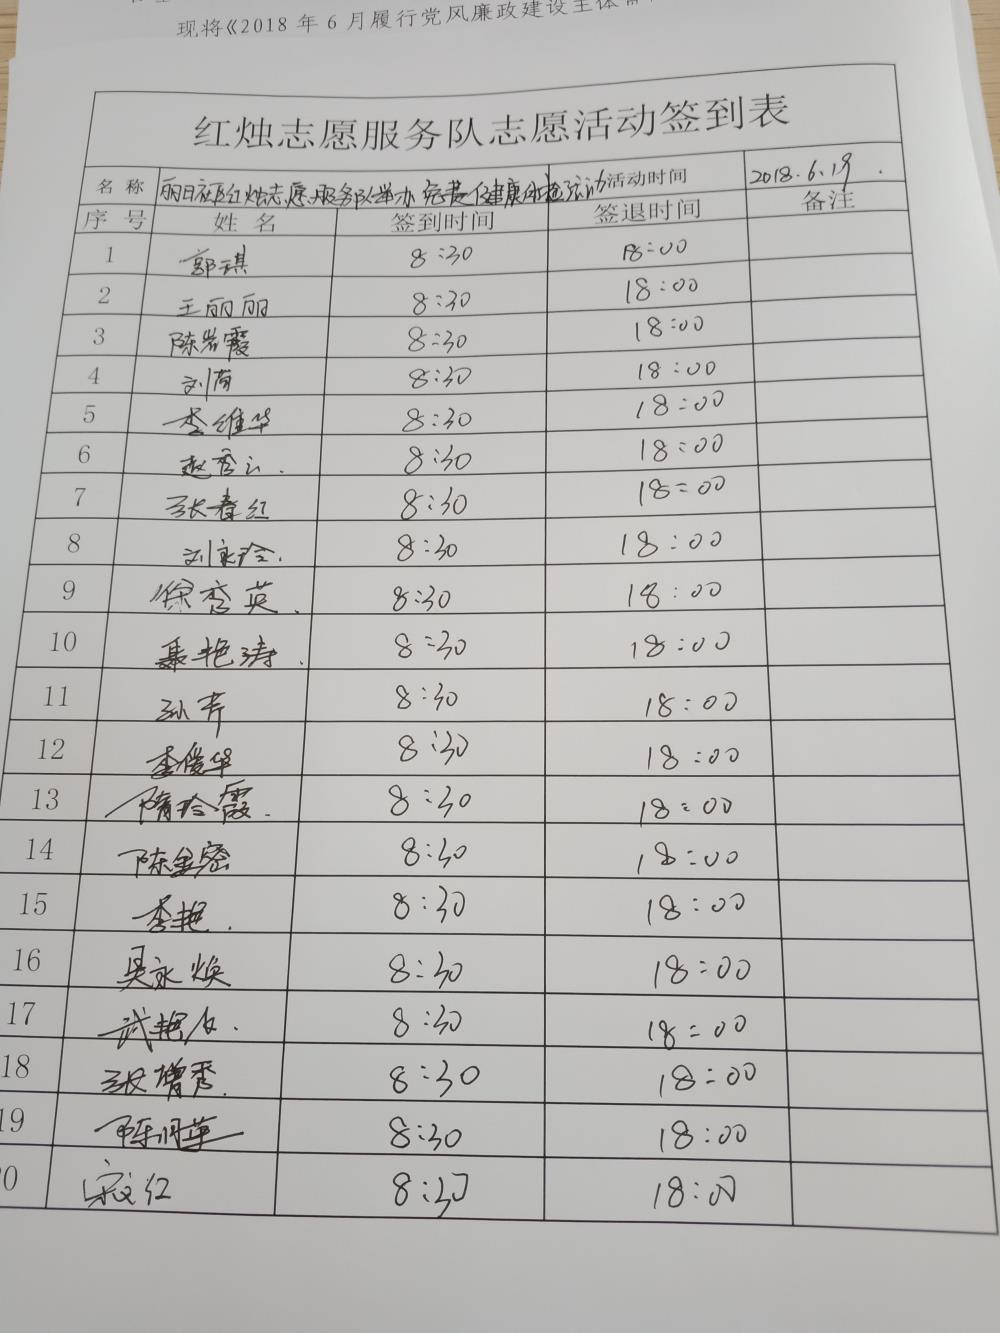 现将《2018年6月履行党风廉政建设主体
红烛志愿服务队志愿活动签到表
名称 丽日社区红烛志愿服务队举办免费健康体检活动 活动时间 2018.6.19.
序号 姓名 签到时间 签退时间 备注
1 郭琪 8:30 18:00
2 王丽丽 8:30 18:00
3 陈岩霞 8:30 18:00
4 刘菊 8:30 18:00
5 李维华 8:30 18:00
6 赵秀云. 8:30 18:00
7 张春红 8:30 18:00
8 刘永玲. 8:30 18:00
9 徐秀英. 8:30 18:00
10 聂艳涛. 8:30 18:00
11 孙芹 8:30 18:00
12 李俊华 8:30 18:00
13 隋玲霞. 8:30 18:00
14 陈金密 8:30 18:00
15 李艳. 8:30 18:00
16 吴永焕 8:30 18:00
17 武艳 8:30 18:00
18 张增秀. 8:30 18:00
19 陈 8:30 18:00
20 宋文红 8:30 18:00